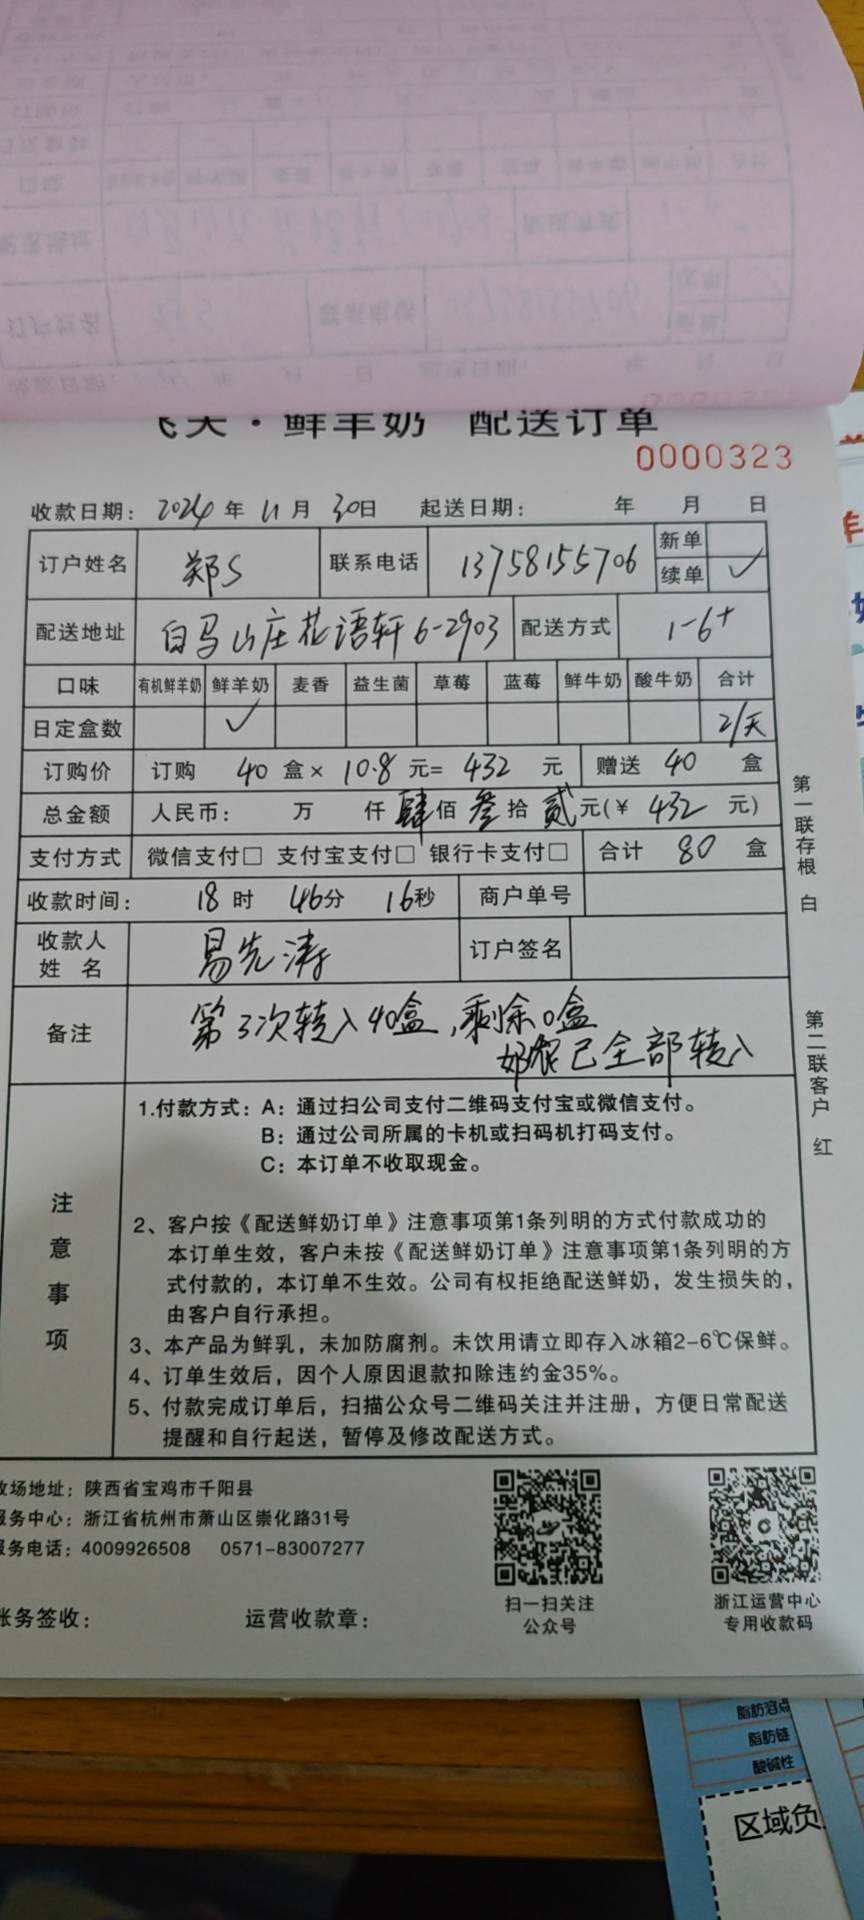 飞天·鲜羊奶 配送订单
0000323
收款日期: 2024年 11月 30日 起送日期: 年 月 日
订户姓名 郑S 联系电话 13758155706 新单
续单 ✓
配送地址 白马山庄花语轩6-2903 配送方式 1-6+
口味 有机鲜羊奶 鲜羊奶 麦香 益生菌 草莓 蓝莓 鲜牛奶 酸牛奶 合计
日定盒数 ✓ 2/天
订购价 订购 40 盒× 10.8 元= 432 元 赠送 40 盒
总金额 人民币: 万 仟 肆佰 叁拾 贰元(¥ 432 元)
支付方式 微信支付□ 支付宝支付□ 银行卡支付□ 合计 80 盒
收款时间: 18时 46分 16秒 商户单号
收款人
姓 名 易先涛 订户签名
备注 第3次转入40盒,剩余0盒
奶源已全部转入
注意事项
1.付款方式: A: 通过扫公司支付二维码支付宝或微信支付。
B: 通过公司所属的卡机或扫码机打码支付。
C: 本订单不收取现金。
2、客户按《配送鲜奶订单》注意事项第1条列明的方式付款成功的
本订单生效，客户未按《配送鲜奶订单》注意事项第1条列明的方
式付款的，本订单不生效。公司有权拒绝配送鲜奶，发生损失的，
由客户自行承担。
3、本产品为鲜乳，未加防腐剂。未饮用请立即存入冰箱2-6℃保鲜。
4、订单生效后，因个人原因退款扣除违约金35%。
5、付款完成订单后，扫描公众号二维码关注并注册，方便日常配送
提醒和自行起送，暂停及修改配送方式。
第一联存根 白
第二联客户 红
牧场地址: 陕西省宝鸡市千阳县
服务中心: 浙江省杭州市萧山区崇化路31号
服务电话: 4009926508 0571-83007277
扫一扫关注
公众号
浙江运营中心
专用收款码
账务签收: 运营收款章:
脂肪溶点
脂肪链
酸碱性
区域负